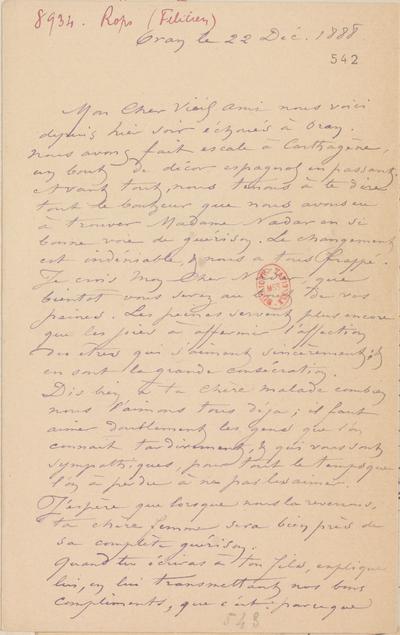 8934. Rops (Félicien)
Oran le 22 Déc. 1888
542
Mon Cher Vieil Ami nous voici
depuis hier soir échoués à Oran.
Nous avons fait escale à Carthagène,
un bout de décor espagnol en passant.
Avant tout, nous tenons à te dire
tout le bonheur que nous avons eu
à trouver Madame Nadar en si
bonne voie de guérison. Le changement
est indéniable, & nous a tous frappé.
Je crois mon Cher Nadar, que
bientôt vous serez au bout de vos
peines. Les peines servent plus encore
que les joies à affermir l'affection
des êtres qui s'aiment sincèrement, &
en sont la grande consécration.
Dis bien à ta chère malade combien
nous l'aimons tous déjà ; il faut
aimer doublement les gens que l'on
connait tardivement, & qui vous sont
sympathiques, pour tout le temps que
l'on a perdu à ne pas les aimer.
J'espère que lorsque nous la reverrons,
ta chère femme sera bien près de
sa complète guérison.
Quand tu écriras à ton fils, explique
lui, en lui transmettant nos bons
compliments, que c'est parceque
543